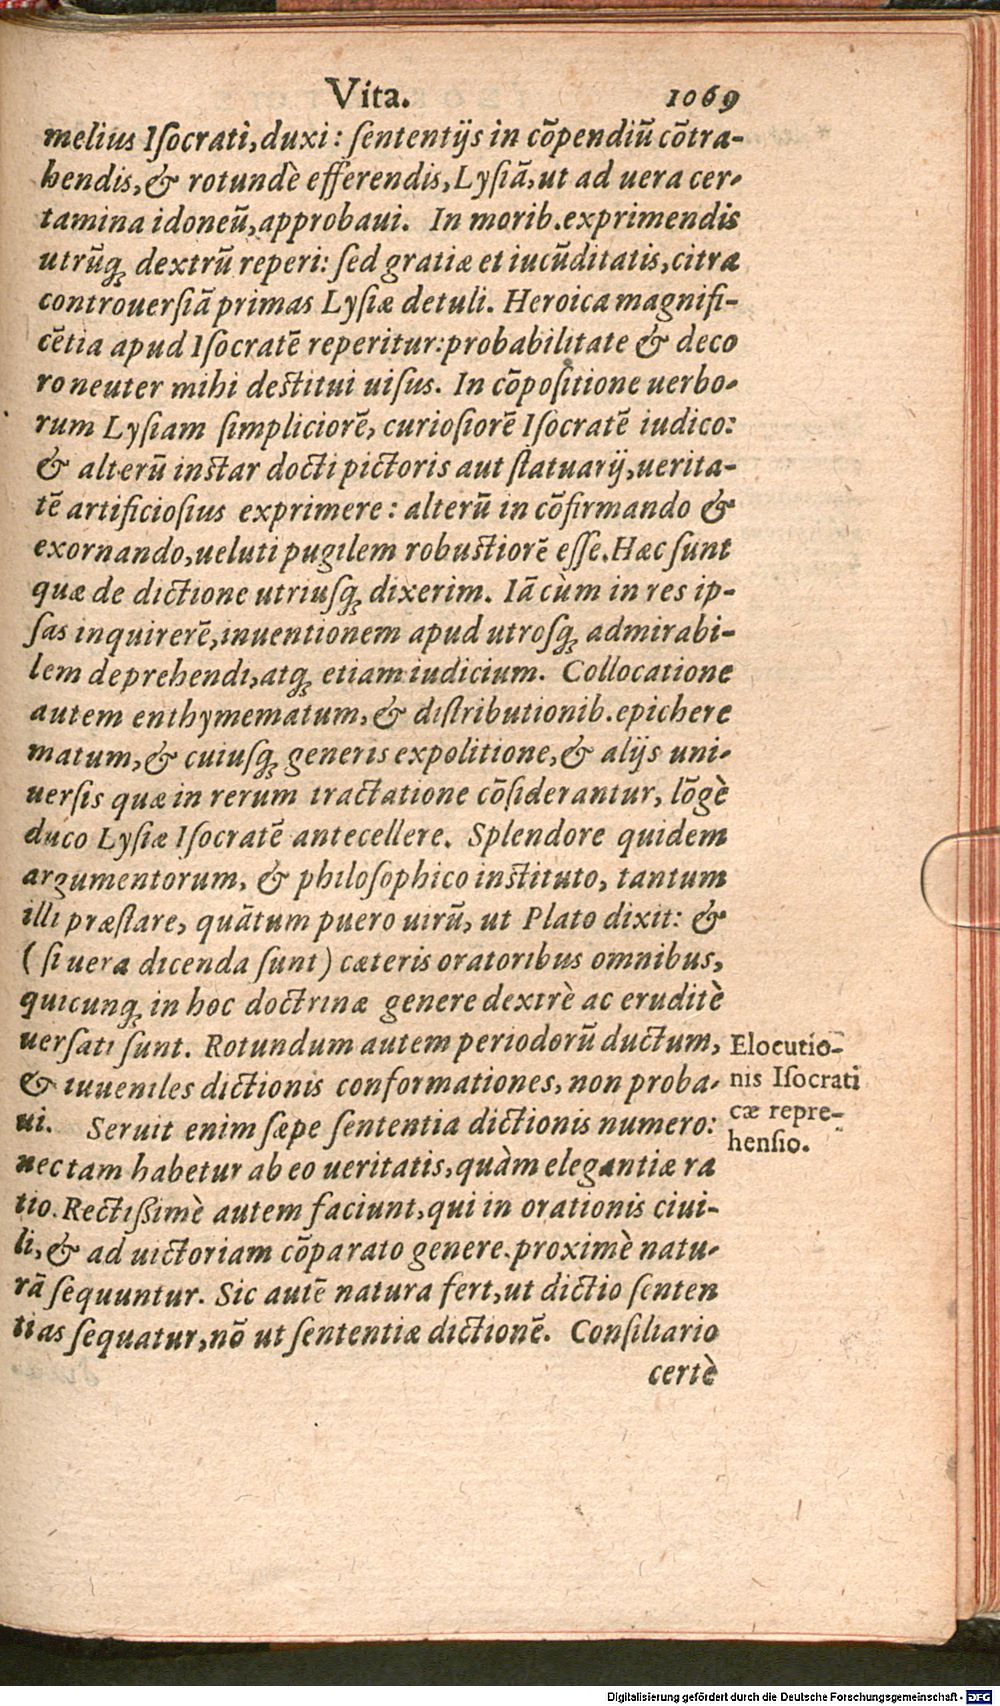 Vita. 1069
melius Iſocrati, duxi: ſententijs in cōpendiū cōtra-
hendis, & rotundè efferendis, Lyſiā, ut ad uera cer-
tamina idoneū, approbaui. In morib. exprimendis
utrūq; dextrū reperi: ſed gratiæ et iucūditatis, citra
controuerſiā primas Lyſiæ detuli. Heroica magnifi-
cētia apud Iſocratē reperitur: probabilitate & deco
ro neuter mihi destitui uiſus. In cōpoſitione uerbo-
rum Lyſiam ſimpliciorē, curioſiorē Iſocratē iudico:
& alterū instar docti pictoris aut ſtatuarij, uerita-
tē artificioſius exprimere: alterū in cōfirmando &
exornando, ueluti pugilem robustiorē eſſe. Hæc ſunt
quæ de dictione utriuſq; dixerim. Iā cùm in res ip-
ſas inquirerē, inuentionem apud utroſq; admirabi-
lem deprehendi, atq; etiam iudicium. Collocatione
autem enthymematum, & diſtributionib. epichere
matum, & cuiuſq; generis expolitione, & alijs uni-
uerſis quæ in rerum tractatione cōſiderantur, lōgè
duco Lyſiæ Iſocratē antecellere. Splendore quidem
argumentorum, & philoſophico instituto, tantum
illi præſtare, quātum puero uirū, ut Plato dixit: &
(ſi uera dicenda ſunt) cæteris oratoribus omnibus,
quicunq; in hoc doctrinæ genere dextrè ac eruditè
uerſati ſunt. Rotundum autem periodorū ductum,
& iuueniles dictionis conformationes, non proba-
ui. Seruit enim ſæpe ſententia dictionis numero:
nec tam habetur ab eo ueritatis, quàm elegantiæ ra
tio. Rectiſsimè autem faciunt, qui in orationis ciui-
li, & ad uictoriam cōparato genere, proximè natu-
rā ſequuntur. Sic autē natura fert, ut dictio ſenten
tias ſequatur, nō ut ſententiæ dictionē. Conſiliario
certè
Elocutio-
nis Iſocrati
cæ repre-
henſio.
Digitalisierung gefördert durch die Deutsche Forschungsgemeinschaft - DFG